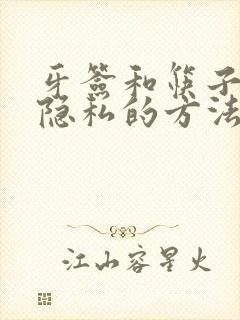 牙签和筷子
隐私的方法
江山容星火